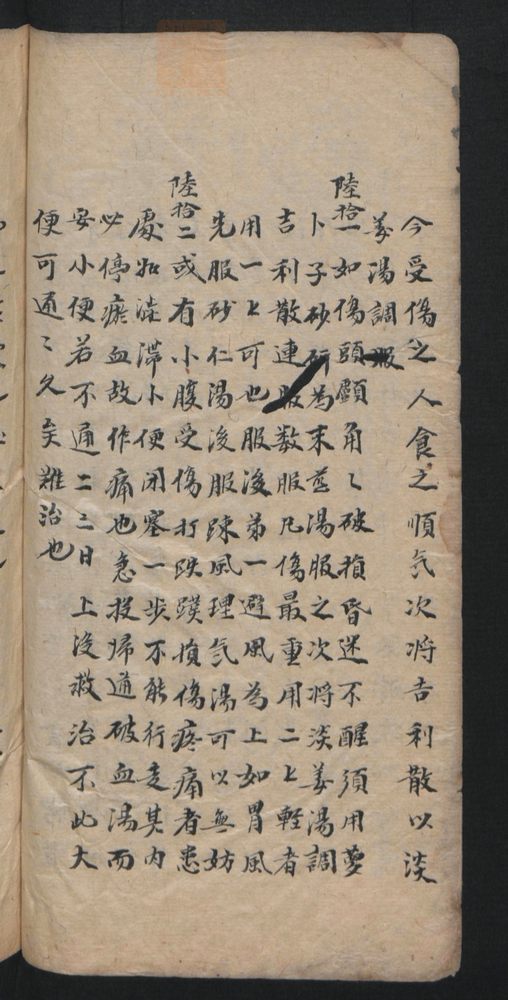 今受傷之人食之順気次将吉利散以淡
姜湯調服
陸拾一如傷頭顱角々破損昏迷不醒須用萝
卜子砂研為末姜湯服之次将淡姜湯調
吉利散連服数服凡傷最重用二匕輕者
用一匕可也服後第一避風為上如冒風
先服砂仁湯後服疎風理気湯可以無妨
陸拾二或有小腹受傷打跌蹼損傷疼痛者患
處如滯小便闭塞一步不能行走其内
必停瘀血故作痛也急投歸道破血湯而
安小便若不通二三日上没救治不此大
便可通々久矣難治也